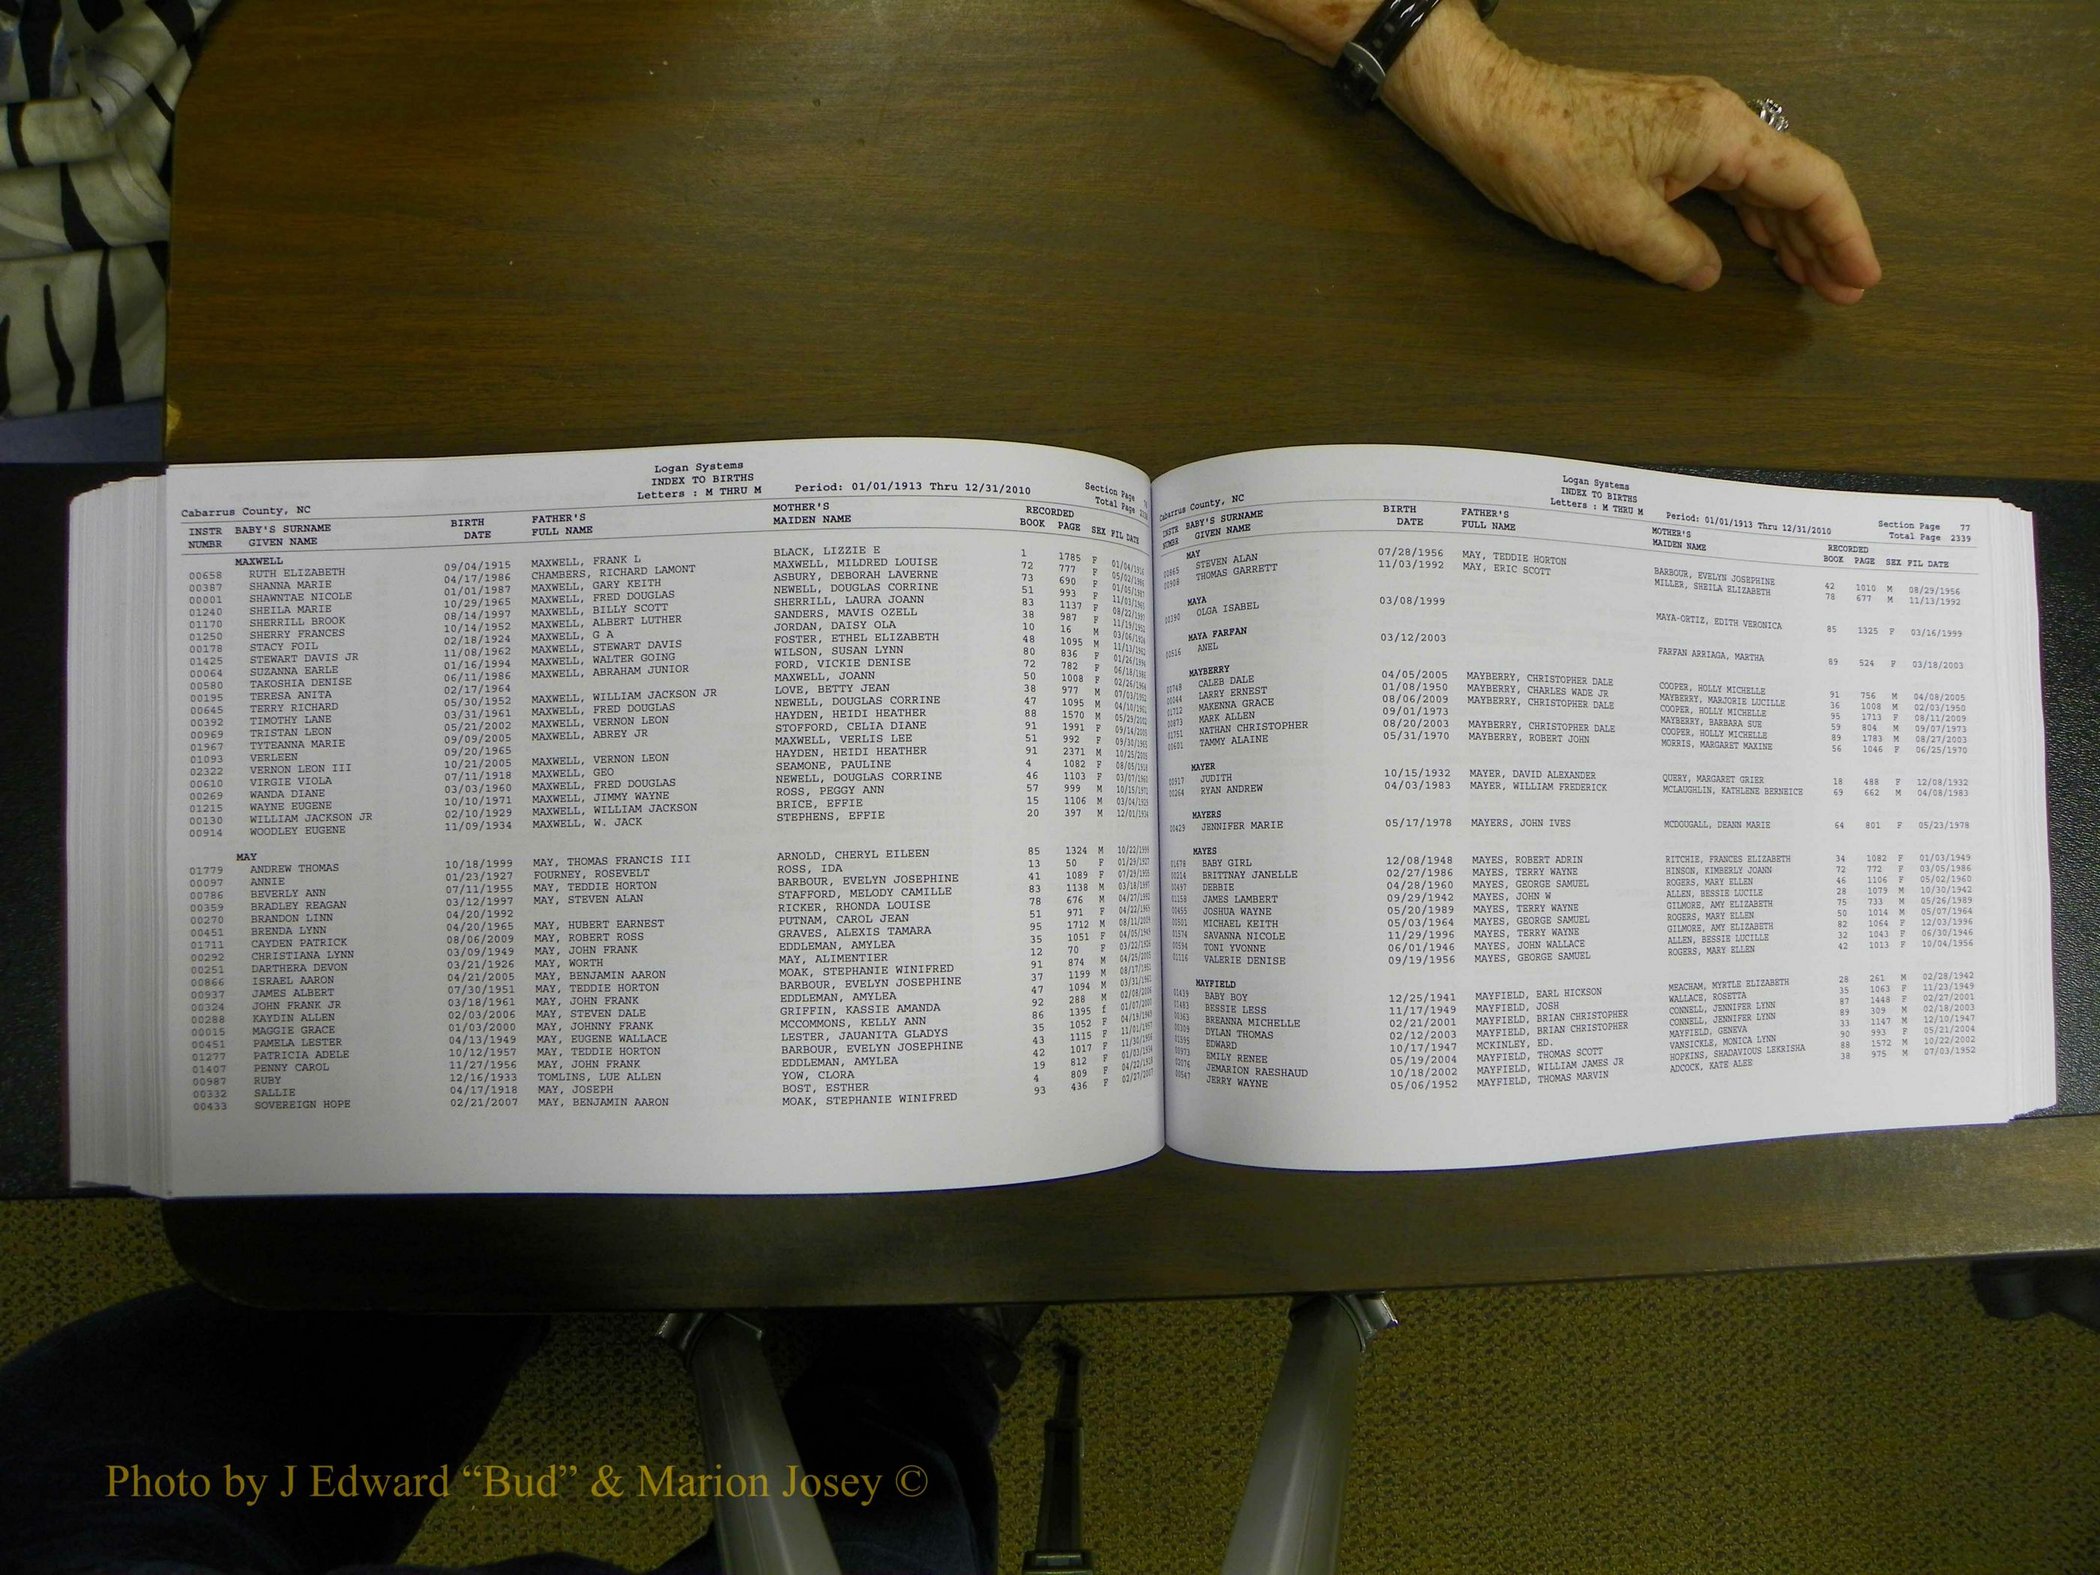 Logan Systems
INDEX TO BIRTHS
Letters : M THRU M Period: 01/01/1913 Thru 12/31/2010 Section Page
Cabarrus County, NC Total Page
INSTR NUMBR BABY'S SURNAME GIVEN NAME BIRTH DATE FATHER'S FULL NAME MOTHER'S MAIDEN NAME RECORDED BOOK PAGE SEX FIL DATE
MAXWELL
00658 RUTH ELIZABETH 09/04/1915 MAXWELL, FRANK L BLACK, LIZZIE E 1 1785 F 01/04/1916
00387 SHANNA MARIE 04/17/1986 CHAMBERS, RICHARD LAMONT MAXWELL, MILDRED LOUISE 72 777 F 05/02/1986
00001 SHAWNTAE NICOLE 01/01/1987 MAXWELL, GARY KEITH ASBURY, DEBORAH LAVERNE 73 690 F 01/05/1987
01240 SHEILA MARIE 10/29/1965 MAXWELL, FRED DOUGLAS NEWELL, DOUGLAS CORRINE 51 993 F 11/03/1965
01170 SHERRILL BROOK 08/14/1997 MAXWELL, BILLY SCOTT SHERRILL, LAURA JOANN 83 1137 F 08/22/1997
01250 SHERRY FRANCES 10/14/1952 MAXWELL, ALBERT LUTHER SANDERS, MAVIS OZELL 38 987 F 11/19/1952
00178 STACY FOIL 02/18/1924 MAXWELL, G A JORDAN, DAISY OLA 10 16 M 03/06/1924
01425 STEWART DAVIS JR 11/08/1962 MAXWELL, STEWART DAVIS FOSTER, ETHEL ELIZABETH 48 1095 M 11/13/1962
00064 SUZANNA EARLE 01/16/1994 MAXWELL, WALTER GOING WILSON, SUSAN LYNN 80 836 F 01/26/1994
00580 TAKOSHIA DENISE 06/11/1986 MAXWELL, ABRAHAM JUNIOR FORD, VICKIE DENISE 72 782 F 06/18/1986
00195 TERESA ANITA 02/17/1964 MAXWELL, JOANN 50 1008 F 02/26/1964
00645 TERRY RICHARD 05/30/1952 MAXWELL, WILLIAM JACKSON JR LOVE, BETTY JEAN 38 977 M 07/03/1952
00392 TIMOTHY LANE 03/31/1961 MAXWELL, FRED DOUGLAS NEWELL, DOUGLAS CORRINE 47 1095 M 04/10/1961
00969 TRISTAN LEON 05/21/2002 MAXWELL, VERNON LEON HAYDEN, HEIDI HEATHER 88 1570 M 05/29/2002
01967 TYTEANNA MARIE 09/09/2005 MAXWELL, ABREY JR STOFFORD, CELIA DIANE 91 1991 F 09/14/2005
01093 VERLEEN 09/20/1965 MAXWELL, VERLIS LEE 51 992 F 09/30/1965
02322 VERNON LEON III 10/21/2005 MAXWELL, VERNON LEON HAYDEN, HEIDI HEATHER 91 2371 M 10/25/2005
00610 VIRGIE VIOLA 07/11/1918 MAXWELL, GEO SEAMONE, PAULINE 4 1082 F 08/05/1918
00269 WANDA DIANE 03/03/1960 MAXWELL, FRED DOUGLAS NEWELL, DOUGLAS CORRINE 46 1103 F 03/07/1960
01215 WAYNE EUGENE 10/10/1971 MAXWELL, JIMMY WAYNE ROSS, PEGGY ANN 57 999 M 10/15/1971
00130 WILLIAM JACKSON JR 02/10/1929 MAXWELL, WILLIAM JACKSON BRICE, EFFIE 15 1106 M 03/04/1929
00914 WOODLEY EUGENE 11/09/1934 MAXWELL, W. JACK STEPHENS, EFFIE 20 397 M 12/01/1934
MAY
01779 ANDREW THOMAS 10/18/1999 MAY, THOMAS FRANCIS III ARNOLD, CHERYL EILEEN 85 1324 M 10/22/1999
00097 ANNIE 01/23/1927 FOURNEY, ROSEVELT ROSS, IDA 13 50 F 01/29/1927
00786 BEVERLY ANN 07/11/1955 MAY, TEDDIE HORTON BARBOUR, EVELYN JOSEPHINE 41 1089 F 07/29/1955
00359 BRADLEY REAGAN 03/12/1997 MAY, STEVEN ALAN STAFFORD, MELODY CAMILLE 83 1138 M 03/18/1997
00270 BRANDON LINN 04/20/1992 RICKER, RHONDA LOUISE 78 676 M 04/27/1992
00451 BRENDA LYNN 04/20/1965 MAY, HUBERT EARNEST PUTNAM, CAROL JEAN 51 971 F 04/22/1965
01711 CAYDEN PATRICK 08/06/2009 MAY, ROBERT ROSS GRAVES, ALEXIS TAMARA 95 1712 M 08/11/2009
00292 CHRISTIANA LYNN 03/09/1949 MAY, JOHN FRANK EDDLEMAN, AMYLEA 35 1051 F 04/05/1949
00251 DARTHERA DEVON 03/21/1926 MAY, WORTH MAY, ALIMENTIER 12 70 F 03/22/1926
00866 ISRAEL AARON 04/21/2005 MAY, BENJAMIN AARON MOAK, STEPHANIE WINIFRED 91 874 M 04/25/2005
00937 JAMES ALBERT 07/30/1951 MAY, TEDDIE HORTON BARBOUR, EVELYN JOSEPHINE 37 1199 M 08/17/1951
00324 JOHN FRANK JR 03/18/1961 MAY, JOHN FRANK EDDLEMAN, AMYLEA 47 1094 M 03/31/1961
00288 KAYDIN ALLEN 02/03/2006 MAY, STEVEN DALE GRIFFIN, KASSIE AMANDA 92 288 M 02/08/2006
00015 MAGGIE GRACE 01/03/2000 MAY, JOHNNY FRANK MCCOMMONS, KELLY ANN 86 1395 f 01/07/2000
00451 PAMELA LESTER 04/13/1949 MAY, EUGENE WALLACE LESTER, JAUANITA GLADYS 35 1052 F 04/19/1949
01277 PATRICIA ADELE 10/12/1957 MAY, TEDDIE HORTON BARBOUR, EVELYN JOSEPHINE 43 1115 F 11/01/1957
01407 PENNY CAROL 11/27/1956 MAY, JOHN FRANK EDDLEMAN, AMYLEA 42 1017 F 11/30/1956
00987 RUBY 12/16/1933 TOMLINS, LUE ALLEN YOW, CLORA 19 812 F 01/03/1934
00332 SALLIE 04/17/1918 MAY, JOSEPH BOST, ESTHER 4 809 F 04/22/1918
00433 SOVEREIGN HOPE 02/21/2007 MAY, BENJAMIN AARON MOAK, STEPHANIE WINIFRED 93 436 F 02/27/2007
Logan Systems
INDEX TO BIRTHS
Letters : M THRU M Period: 01/01/1913 Thru 12/31/2010 Section Page 77
Cabarrus County, NC Total Page 2339
INSTR NUMBR BABY'S SURNAME GIVEN NAME BIRTH DATE FATHER'S FULL NAME MOTHER'S MAIDEN NAME RECORDED BOOK PAGE SEX FIL DATE
MAY
00865 STEVEN ALAN 07/28/1956 MAY, TEDDIE HORTON BARBOUR, EVELYN JOSEPHINE 42 1010 M 08/29/1956
00908 THOMAS GARRETT 11/03/1992 MAY, ERIC SCOTT MILLER, SHEILA ELIZABETH 78 677 M 11/13/1992
MAYA
00390 OLGA ISABEL 03/08/1999 MAYA-ORTIZ, EDITH VERONICA 85 1325 F 03/16/1999
MAYA FARFAN
00516 ANEL 03/12/2003 FARFAN ARRIAGA, MARTHA 89 524 F 03/18/2003
MAYBERRY
00748 CALEB DALE 04/05/2005 MAYBERRY, CHRISTOPHER DALE COOPER, HOLLY MICHELLE 91 756 M 04/08/2005
00044 LARRY ERNEST 01/08/1950 MAYBERRY, CHARLES WADE JR MAYBERRY, MARJORIE LUCILLE 36 1008 M 02/03/1950
01712 MAKENNA GRACE 08/06/2009 MAYBERRY, CHRISTOPHER DALE COOPER, HOLLY MICHELLE 95 1713 F 08/11/2009
00873 MARK ALLEN 09/01/1973 MAYBERRY, BARBARA SUE 59 804 M 09/07/1973
01751 NATHAN CHRISTOPHER 08/20/2003 MAYBERRY, CHRISTOPHER DALE COOPER, HOLLY MICHELLE 89 1783 M 08/27/2003
00601 TAMMY ALAINE 05/31/1970 MAYBERRY, ROBERT JOHN MORRIS, MARGARET MAXINE 56 1046 F 06/25/1970
MAYER
00917 JUDITH 10/15/1932 MAYER, DAVID ALEXANDER QUERY, MARGARET GRIER 18 488 F 12/08/1932
00264 RYAN ANDREW 04/03/1983 MAYER, WILLIAM FREDERICK MCLAUGHLIN, KATHLENE BERNEICE 69 662 M 04/08/1983
MAYERS
00429 JENNIFER MARIE 05/17/1978 MAYERS, JOHN IVES MCDOUGALL, DEANN MARIE 64 801 F 05/23/1978
MAYES
01678 BABY GIRL 12/08/1948 MAYES, ROBERT ADRIN RITCHIE, FRANCES ELIZABETH 34 1082 F 01/03/1949
00214 BRITTNAY JANELLE 02/27/1986 MAYES, TERRY WAYNE HINSON, KIMBERLY JOANN 72 772 F 03/05/1986
00497 DEBBIE 04/28/1960 MAYES, GEORGE SAMUEL ROGERS, MARY ELLEN 46 1106 F 05/02/1960
01158 JAMES LAMBERT 09/29/1942 MAYES, JOHN W ALLEN, BESSIE LUCILE 28 1079 M 10/30/1942
00455 JOSHUA WAYNE 05/20/1989 MAYES, TERRY WAYNE GILMORE, AMY ELIZABETH 75 733 M 05/26/1989
00501 MICHAEL KEITH 05/03/1964 MAYES, GEORGE SAMUEL ROGERS, MARY ELLEN 50 1014 M 05/07/1964
01574 SAVANNA NICOLE 11/29/1996 MAYES, TERRY WAYNE GILMORE, AMY ELIZABETH 82 1064 F 12/03/1996
00594 TONI YVONNE 06/01/1946 MAYES, JOHN WALLACE ALLEN, BESSIE LUCILLE 32 1043 F 06/30/1946
01116 VALERIE DENISE 09/19/1956 MAYES, GEORGE SAMUEL ROGERS, MARY ELLEN 42 1013 F 10/04/1956
MAYFIELD
01439 BABY BOY 12/25/1941 MAYFIELD, EARL HICKSON MEACHAM, MYRTLE ELIZABETH 28 261 M 02/28/1942
01483 BESSIE LESS 11/17/1949 MAYFIELD, JOSH WALLACE, ROSETTA 35 1063 F 11/23/1949
00363 BREANNA MICHELLE 02/21/2001 MAYFIELD, BRIAN CHRISTOPHER CONNELL, JENNIFER LYNN 87 1448 F 02/27/2001
00309 DYLAN THOMAS 02/12/2003 MAYFIELD, BRIAN CHRISTOPHER CONNELL, JENNIFER LYNN 89 309 M 02/18/2003
00595 EDWARD 10/17/1947 MCKINLEY, ED. MAYFIELD, GENEVA 33 1147 M 12/10/1947
00973 EMILY RENEE 05/19/2004 MAYFIELD, THOMAS SCOTT VANSICKLE, MONICA LYNN 90 993 F 05/21/2004
02076 JEMARION RAESHAUD 10/18/2002 MAYFIELD, WILLIAM JAMES JR HOPKINS, SHADAVIOUS LEKRISHA 88 1572 M 10/22/2002
00547 JERRY WAYNE 05/06/1952 MAYFIELD, THOMAS MARVIN ADCOCK, KATE ALEE 38 975 M 07/03/1952
Photo by J Edward “Bud” & Marion Josey ©